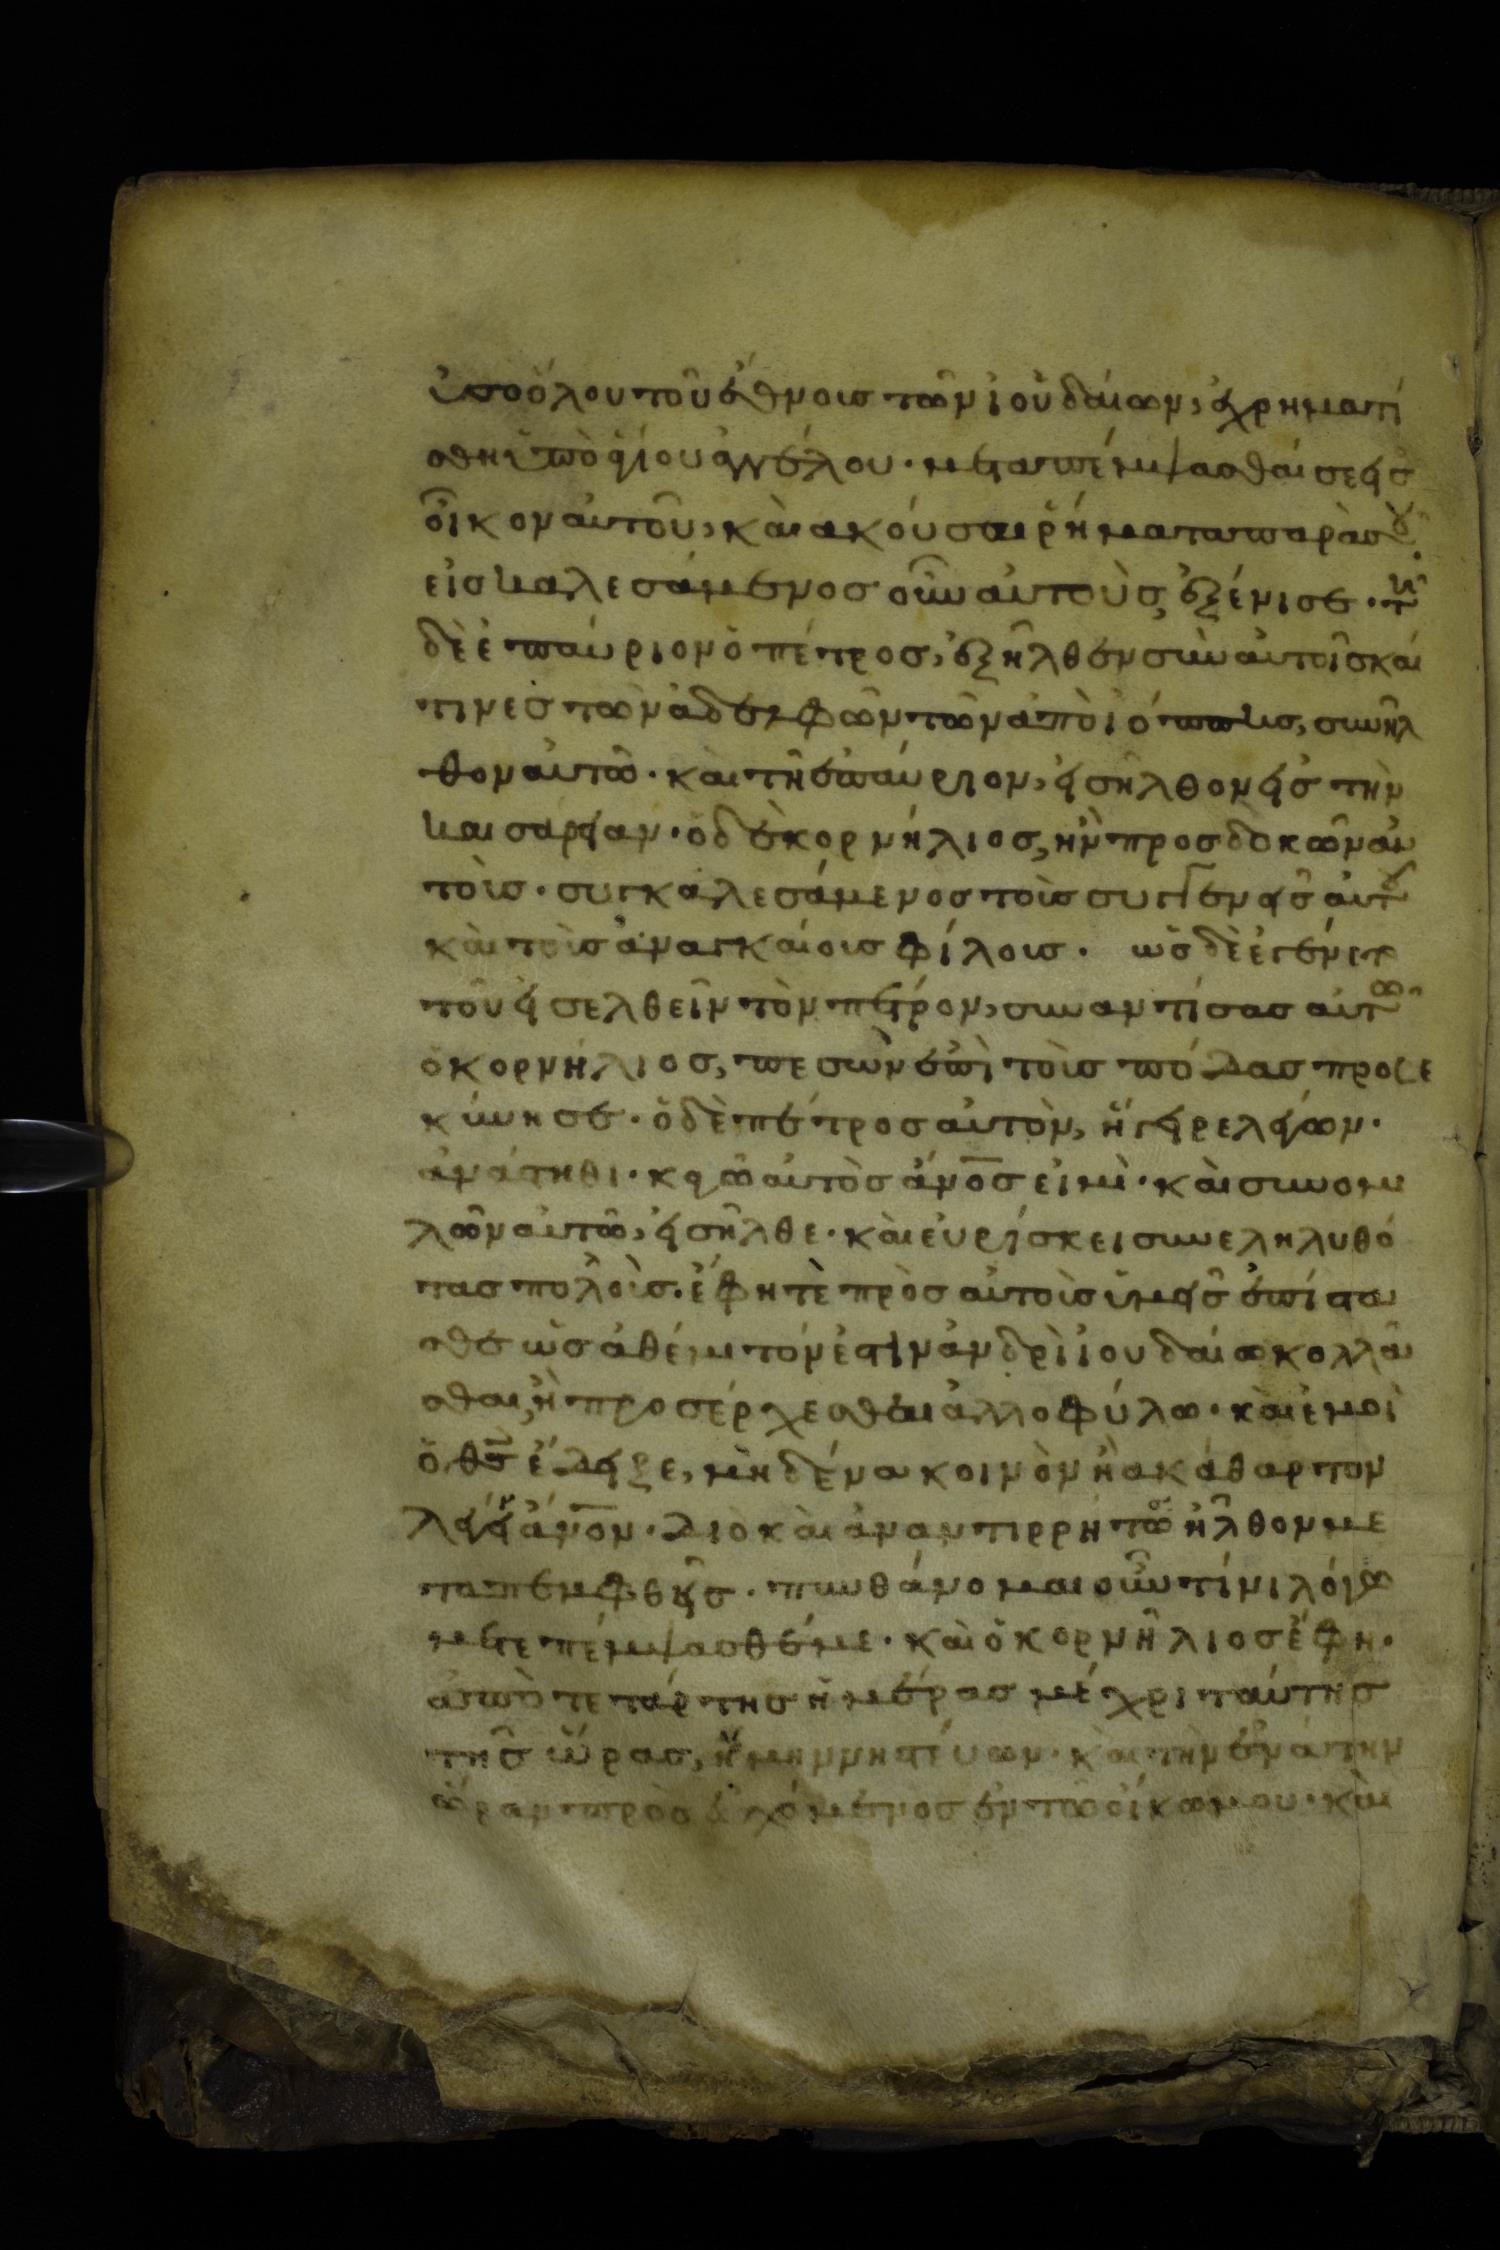 ὑπο ὅλου τοῦ ἔθνοις τῶν ἰουδαίων, ἐχρηματί
σθη ὑπὸ ἁγίου ἀγγέλου· μεταπέμψασθαί σε εἰς
οἶκον αὐτοῦ, καὶ ακούσαι ῥήματα παρὰ σοῦ·
εἰσκαλεσάμενος οὖν αὐτοὺς, ἐξένισε· τῆ
δὲ ἐπαύριον ὁ πέτρος, ἐξῆλθεν σὺν αὐτοῖς καί
τινες τῶν ἀδελφῶν τῶν ἀπὸ ἰόππης, συνῆλ
θον αὐτῶ· καὶ τῆ ἐπαύριον, εἰσῆλθον εἰς τὴν
καισάρειαν· ὁ δὲ κορνήλιος, ἦν προσδοκῶν αὐ
τοὺς· συγκαλεσάμενος τοὺς συγγενεῖς αὐτοῦ
καὶ τοὺς ἀναγκαίους φίλους· ὡς δὲ ἐγένετο
τοῦ εἰσελθεῖν τὸν πέτρον, συναντίσας αὐτῶ
ὁ κορνήλιος, πεσὼν ἐπὶ τοὺς πόδας προσε
κύνησε· ὁ δὲ πέτρος αὐτὸν, ἤγειρε λέγων·
ἀνάστηθι· κἀγῶ αὐτὸς ἄνος εἰμὶ· καὶ συνομι
λῶν αὐτῶ, εἰσῆλθε· καὶ εὑρίσκει συνεληλυθό
τας πολλοὺς· ἔφη τὲ πρὸς αὐτοὺς ὑμεῖς ἐπίστα
σθε ὡς ἀθέμιτόν ἐστιν ἀνδρὶ ἰουδαίω κολλᾶ
σθαι, ἢ προσέρχεσθαι ἀλλοφύλω· καὶ ἐμοὶ
ὁ θς ἔδειξε, μὴ δένα κοινὸν ἢ ακάθαρτον
λέγειν ἄνον· διὸ καὶ ἀναντιρρήτως ἦλθον με
ταπεμφθεὶς· πυνθάνομαι οὖν τίνι λόγω
μετεπέμψασθέ με· καὶ ὁ κορνήλιος ἔφη·
ἀπὸ τετάρτης ἡμέρας μέχρι ταύτης
τῆς ὥρας, ἤμην νηστύων· καὶ τὴν ἐνάτην
ὥραν προσευχόμενος ἐν τῶ οἴκω μου· καὶ